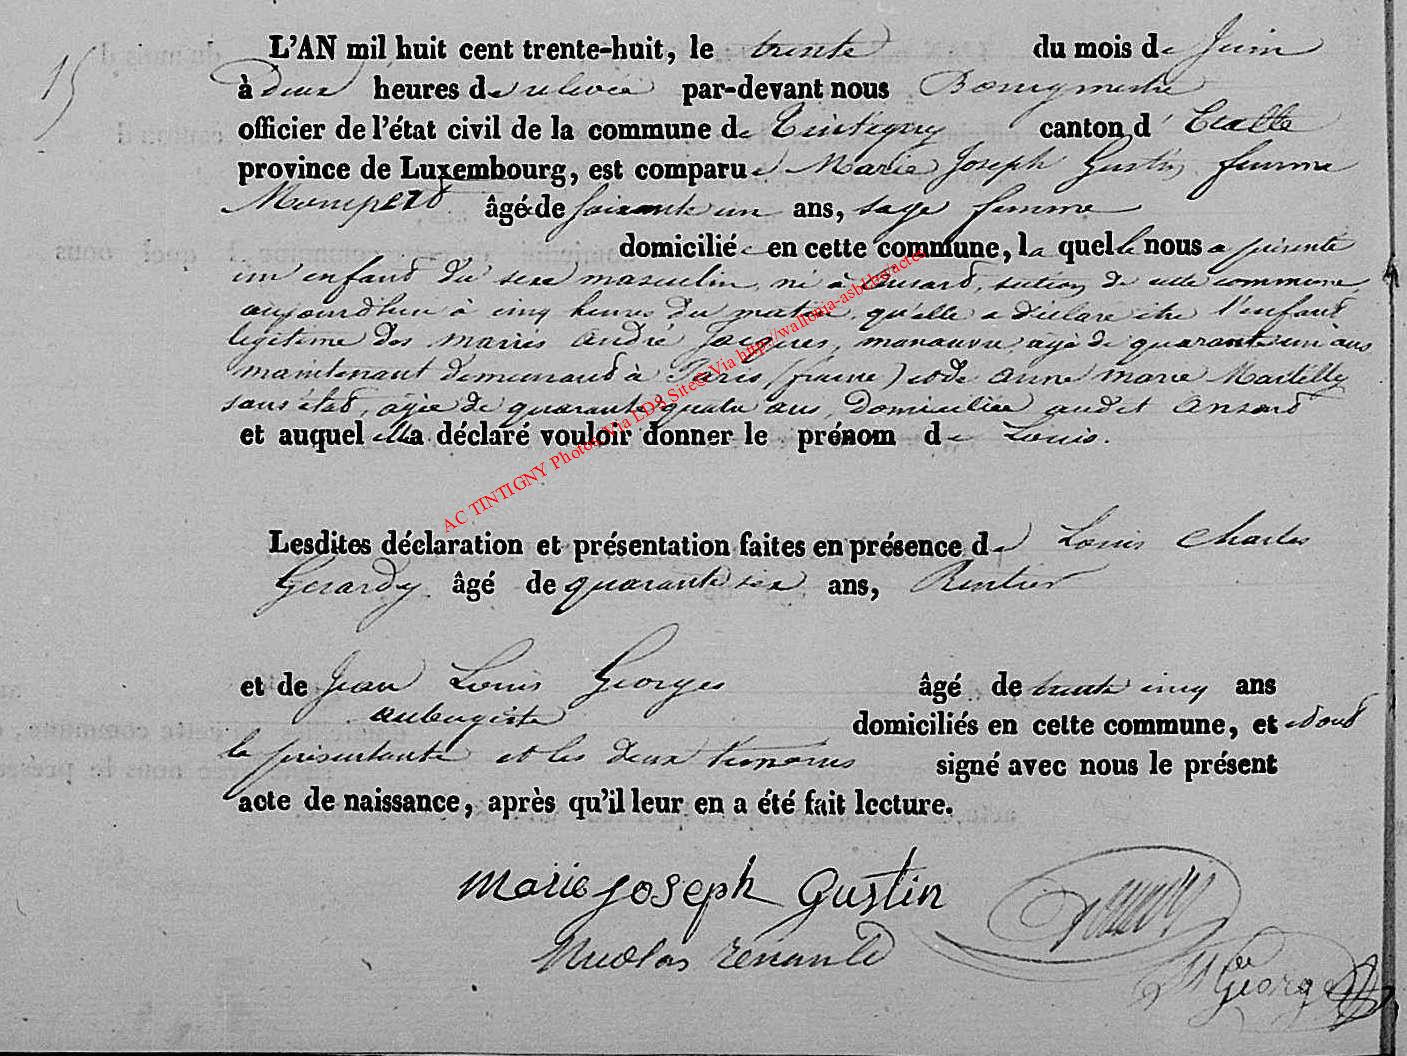 15
L'AN mil huit cent trente-huit, le trente du mois de Juin
à deux heures de relevée par-devant nous Bourgmestre
officier de l'état civil de la commune de Tintigny canton d' Etalle
province de Luxembourg, est comparue Marie Joseph Gustin femme
âgée de soixante un ans, sage femme
domiciliée en cette commune, la quelle nous a présenté
un enfant du sexe masculin, né à Ansard, section de cette commune
aujourd'hui à cinq heures du matin, qu'elle a déclaré être l'enfant
légitime des mariés André Jacques, manœuvre, âgé de quarante un ans
maintenant demeurant à Paris (france) et de Anne Marie
sans état, âgée de quarante quatre ans, domiciliée audit Ansard
et auquel elle a déclaré vouloir donner le prénom de Louis.
Lesdites déclaration et présentation faites en présence de Louis Charles
Gerardy âgé de quarante six ans, Rentier
et de Jean Louis Georges âgé de trente cinq ans
aubergiste domiciliés en cette commune, et ont
la présentante et les deux témoins signé avec nous le présent
acte de naissance, après qu'il leur en a été fait lecture.
Marie Joseph Gustin
Nicolas renauld
Georges
AC TINTIGNY Photos Via LDS Site& Via http://wallonia-asbl.be/actes